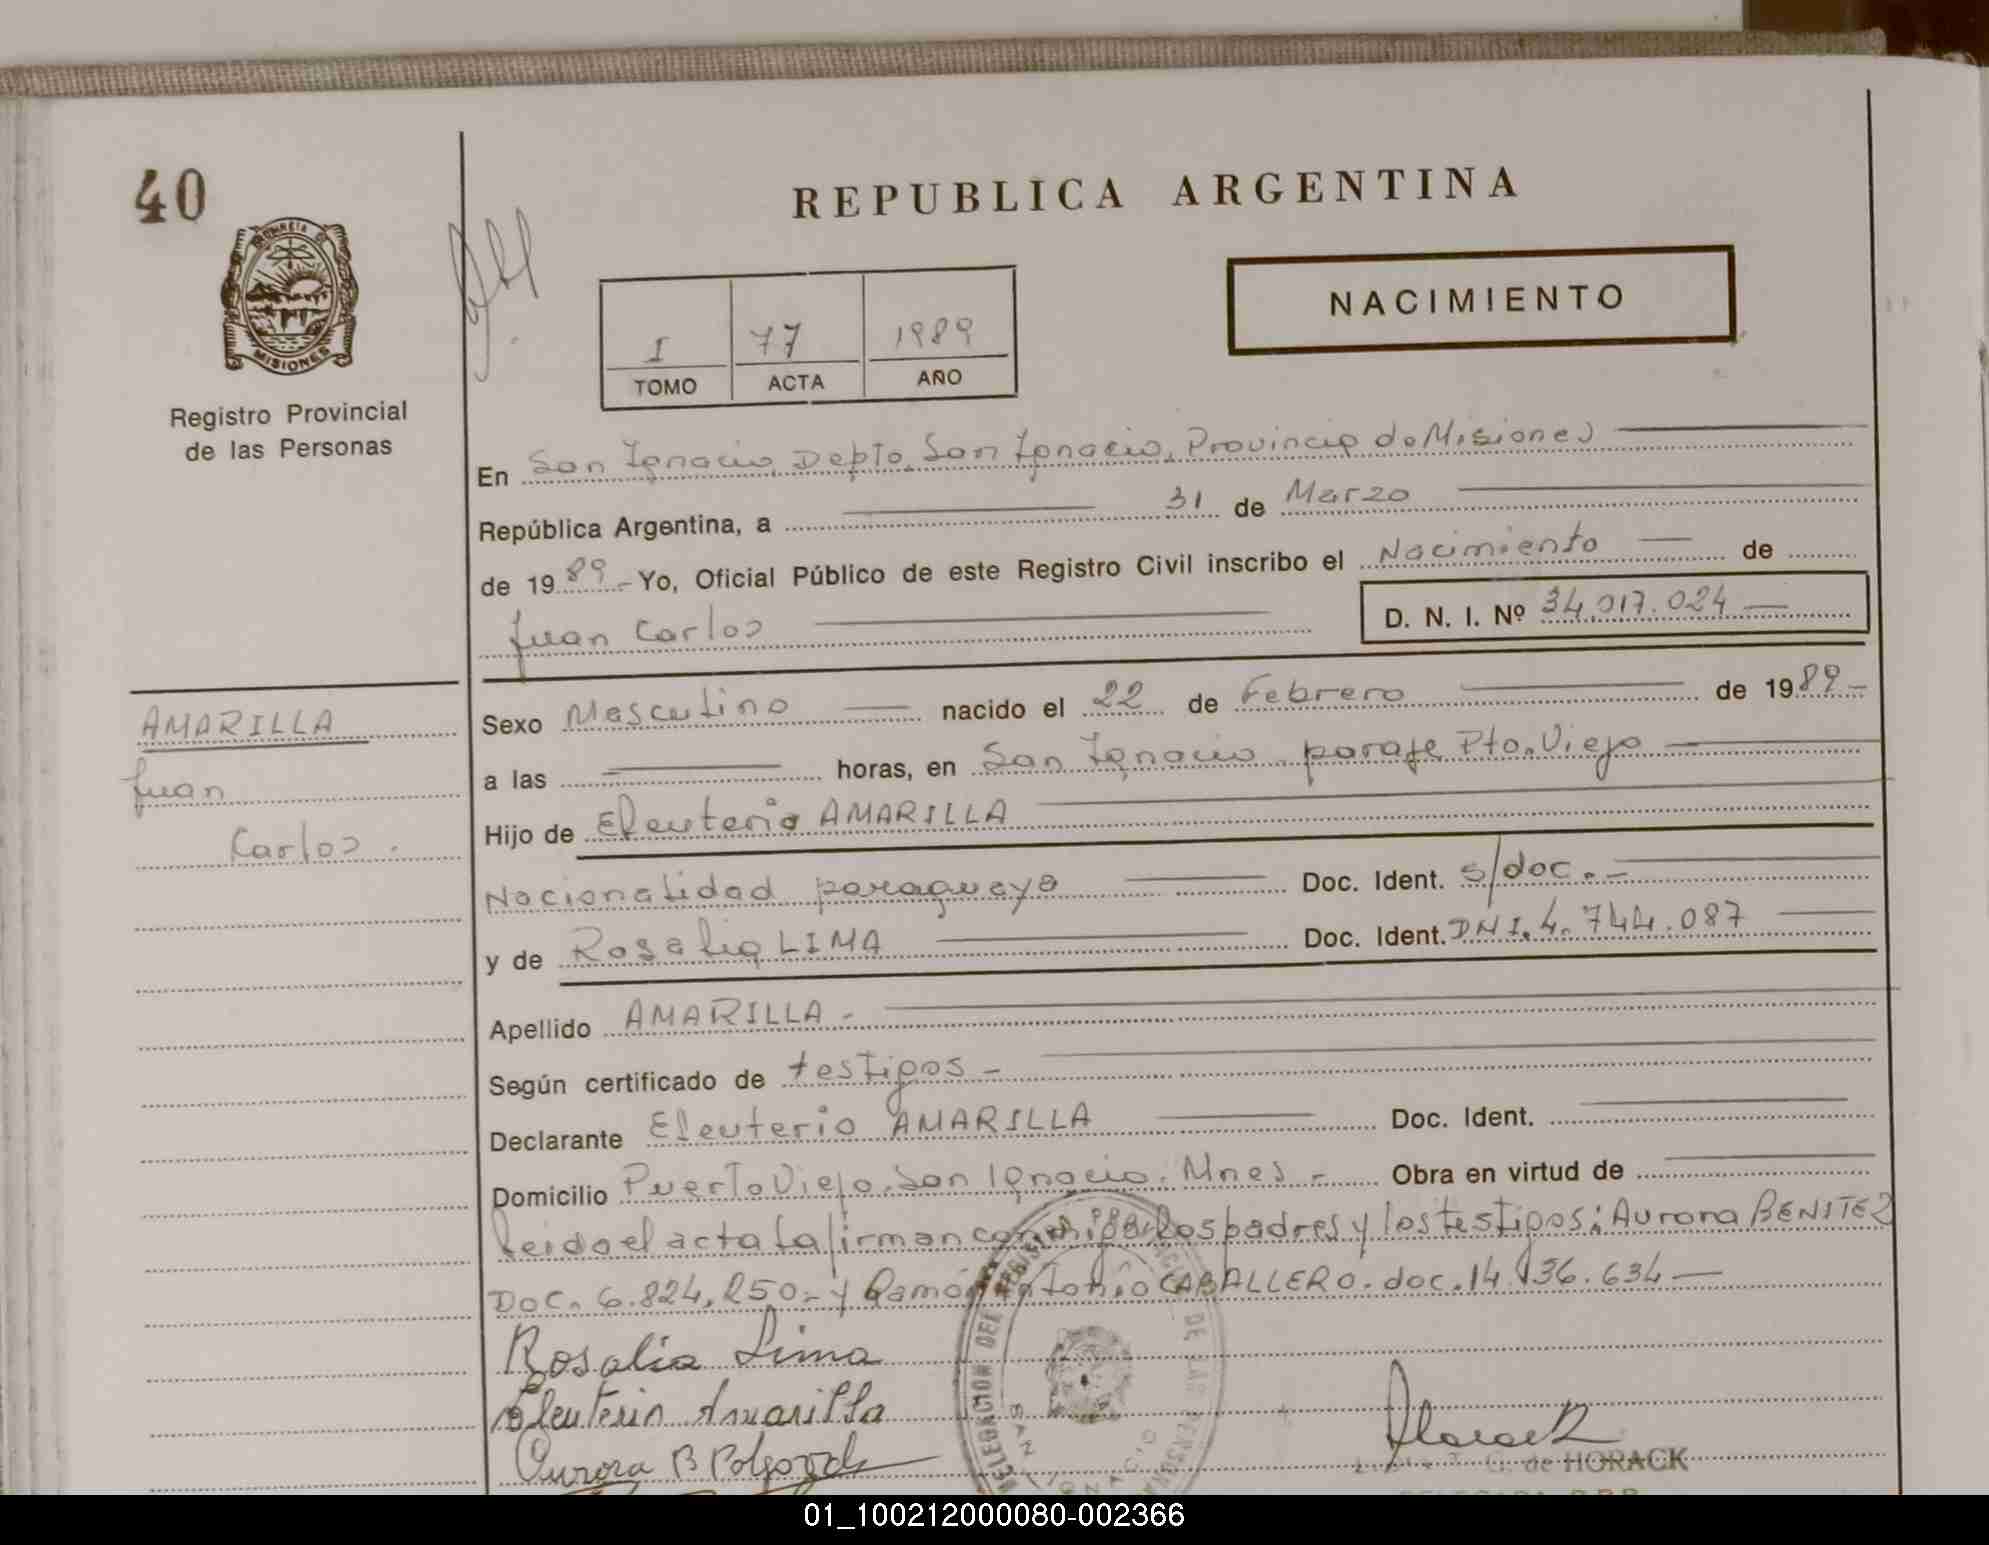 40
REPUBLICA ARGENTINA
NACIMIENTO
I 77 1989
TOMO ACTA AÑO
PROVINCIA DE
MISIONES
Registro Provincial
de las Personas
En San Ignacio, Depto. San Ignacio, Provincia de Misiones
República Argentina, a 31 de Marzo
de 1989.- Yo, Oficial Público de este Registro Civil inscribo el Nacimiento de
Juan Carlos D. N. I. Nº 34.017.024
AMARILLA
Juan
Carlos.
Sexo Masculino nacido el 22 de Febrero de 1989-
a las horas, en San Ignacio paraje Pto. Viejo
Hijo de Eleuterio AMARILLA
Nacionalidad paraguaya Doc. Ident. s/doc.-
y de Rosalia LIMA Doc. Ident. DNI. 4.744.087
Apellido AMARILLA-
Según certificado de testigos-
Declarante Eleuterio AMARILLA Doc. Ident.
Domicilio Puerto Viejo. San Ignacio. Mnes- Obra en virtud de
leido el acta la firman conmigo los padres y los testigos: Aurora BENITEZ
DOC. 6.824.250.- y Ramón Antonio CABALLERO. doc. 14.136.634
Rosalia Lima
Eleuterio Amarilla
Aurora B
Horack
G. de HORACK
DELEGACION DEL REGISTRO PROVINCIAL DE LAS PERSONAS
SAN IGNACIO
01_100212000080-002366